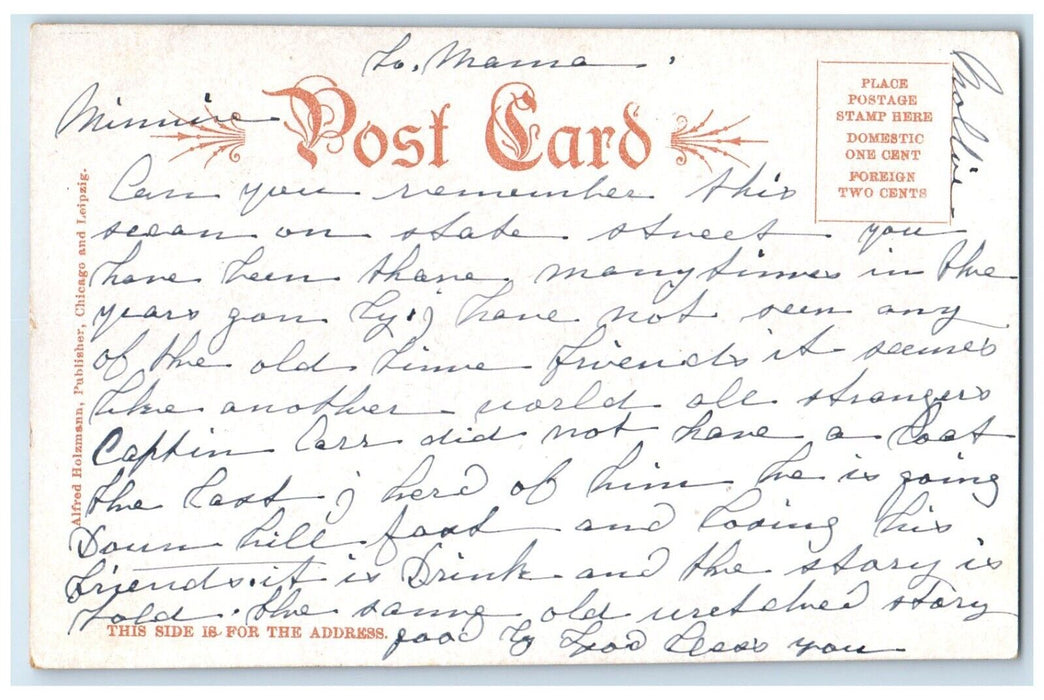 to. Mama.
Minnie
Post Card
PLACE
POSTAGE
STAMP HERE
DOMESTIC
ONE CENT
FOREIGN
TWO CENTS
Mollie
Alfred Holzmann, Publisher, Chicago and Leipzig.
Can you remember this
scean on state street you
have been thare many times in the
years gon by. J have not seen any
of the old time friends it seemes
like another world all strangers
Captin Carr did not have a boat
the last J herd of him he is going
Down hill fast and losing his
friends. it is Drink and the story is
told. the same old wretched story
THIS SIDE IS FOR THE ADDRESS.
good by God bless you